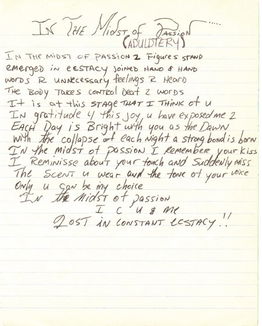 IN THE MIDST of PASSION
(ADULTERY)
IN THE MIDST OF PASSION 2 FIGURES STAND
EMERGED IN ECSTACY JOINED HAND & HAND
WORDS R UNNECESSARY FEELINGS R HEARD
THE BODY TAKES CONTROL DEAF 2 WORDS
IT is AT this STAGE THAT I THINK of U
IN GRATITUDE 4 this JOY U have EXPOSED me 2
EACH DAY is BRIGHT with you as the DAWN
With the collapse of each night a strong bond is born
IN the midst of Passion I Remember your Kiss
I Reminisse about your touch and Suddenly miss
The Scent u wear and the tone of your voice
Only u can be my choice
IN the Midst of passion
I C U & Me
LOST IN CONSTANT ECSTACY!!